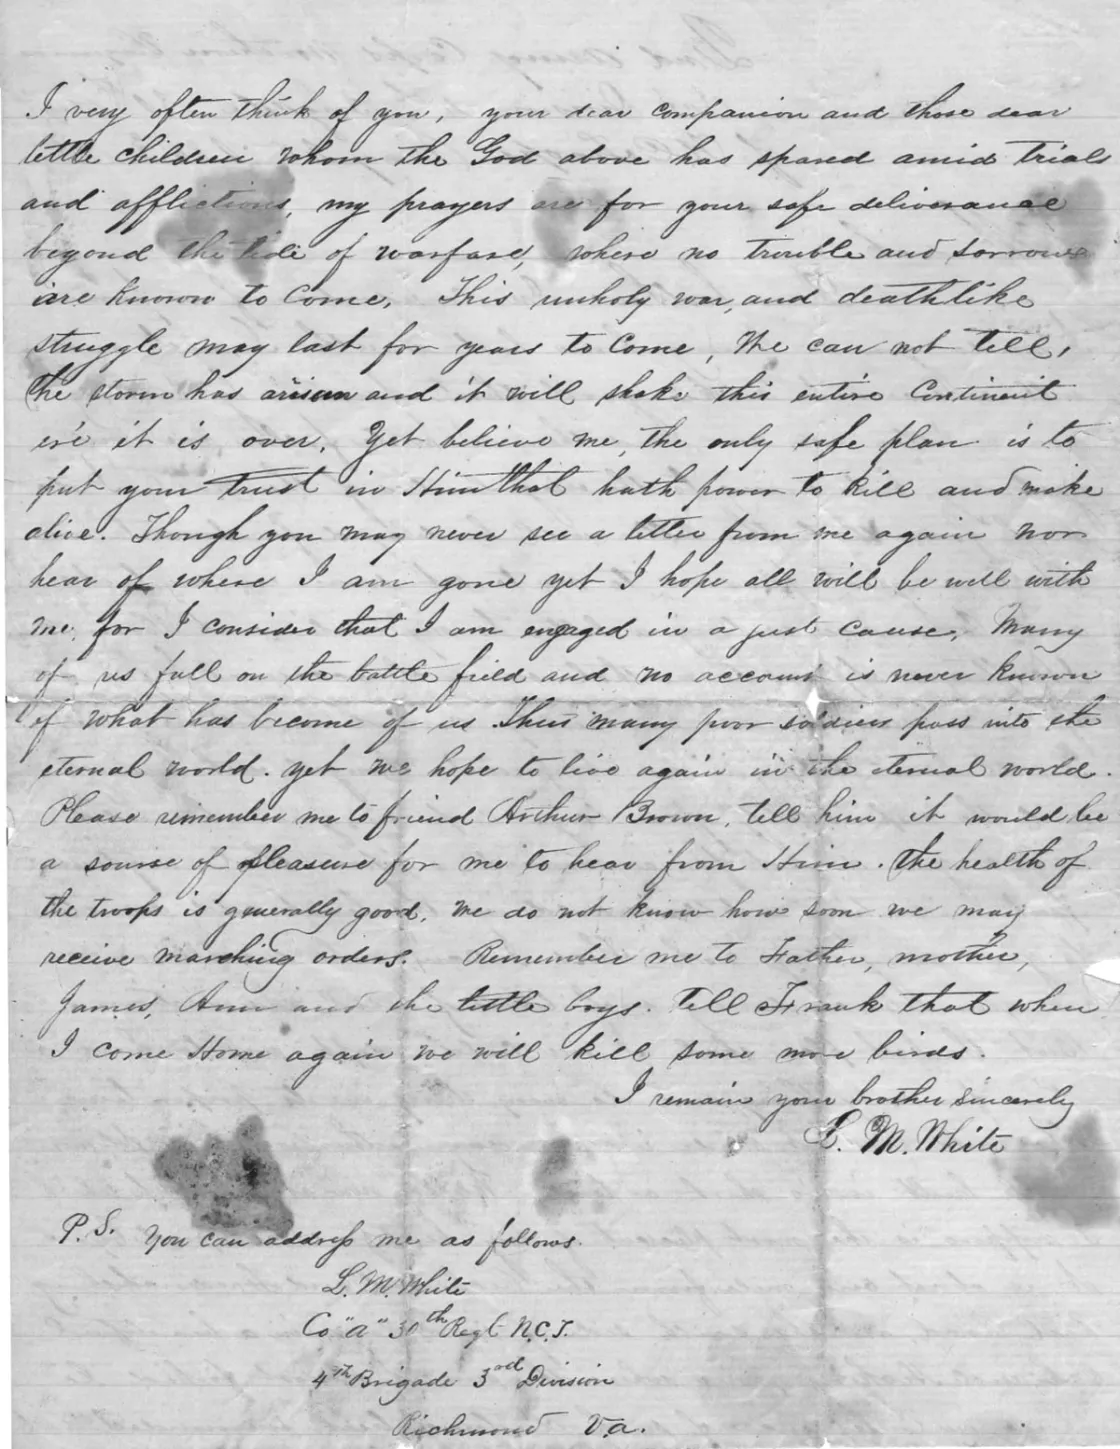 I very often think of you, your dear companion and those dear
little children whom the God above has spared amid trials
and afflictions, my prayers are for your safe deliverance
beyond the tide of warfare, where no trouble and sorrows
are known to come. This unholy war, and deathlike
struggle may last for years to come, We can not tell,
the storm has arisen and it will shake this entire Continent
ere it is over. Yet believe me, the only safe plan is to
put your trust in Him that hath power to kill and make
alive. Though you may never see a letter from me again nor
hear of where I am gone yet I hope all will be well with
me, for I consider that I am engaged in a just cause. Many
of us fall on the battle field and no account is never known
of what has become of us Thus many poor soldiers pass into the
eternal world. yet we hope to live again in the eternal world.
Please remember me to friend Arthur Brown, tell him it would be
a sourse of pleasure for me to hear from Him. the health of
the troops is generally good. We do not know how soon we may
receive marching orders. Remember me to Father, mother,
James, Ann and the little boys. tell Frank that when
I come Home again we will kill some more birds.
I remain your brother sincerely
L. M. White
P.S. You can address me as follows.
L. M. White
Co "a" 30th Regt N.C.T.
4th Brigade 3rd Division
Richmond Va.